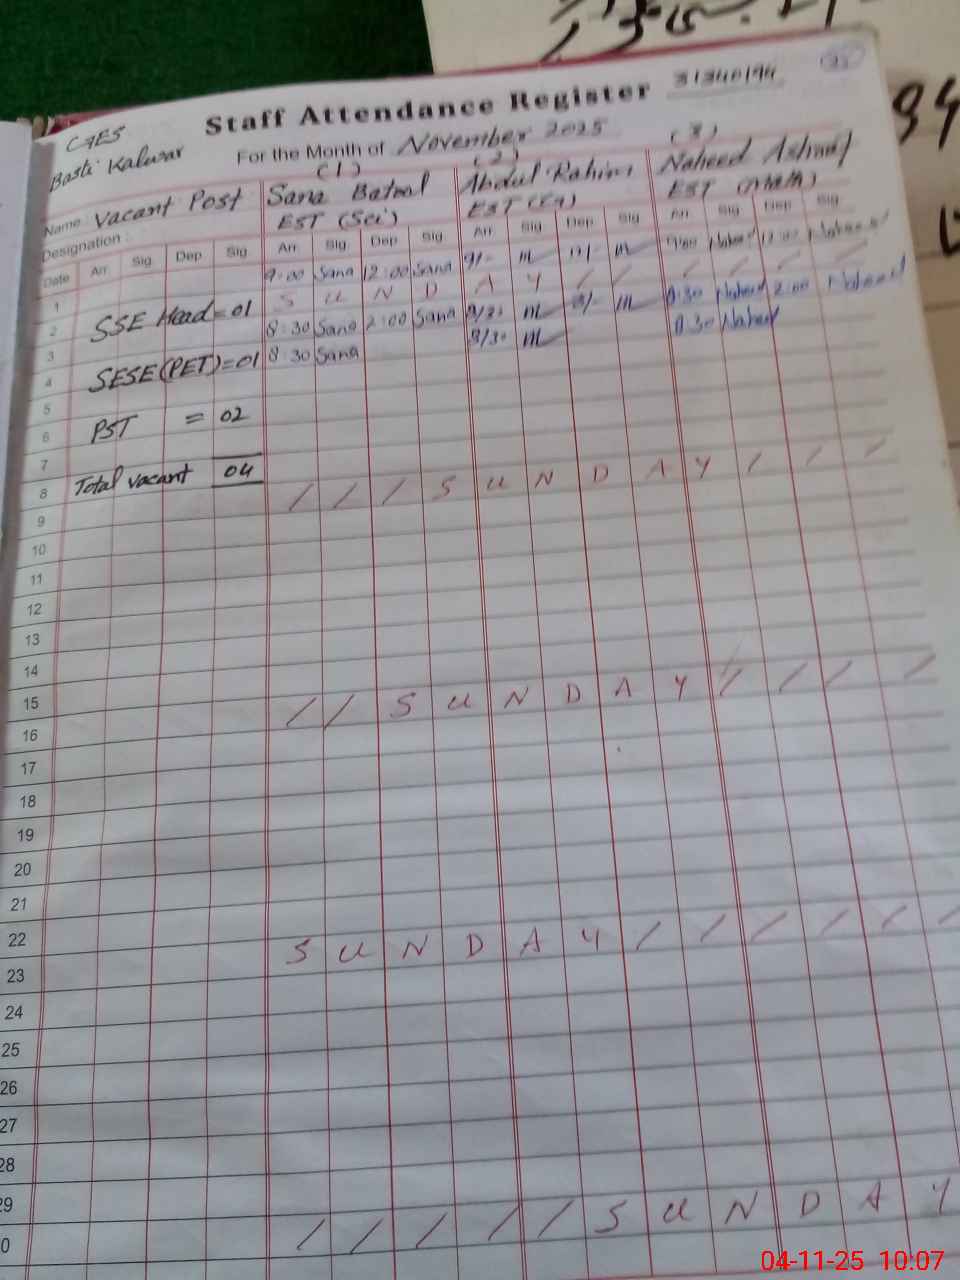 Staff Attendance Register 31340194
25
GGES
Basti Kaluwar
For the Month of November 2025
(1) (2) (3)
Name: Vacant Post Sana Batool Abdul Rahim Naheed Ashraf
Designation: EST (Sci) EST (Eg) EST (Math)
Date Arr. Sig. Dep Sig. Arr. Sig. Dep Sig. Arr. Sig. Dep Sig. Arr. Sig. Dep Sig.
1 9:00 Sana 12:00 Sana 9/- 12/- 9:00 Naheed 12:00 Naheed
2 SSE Head = 01 S U N D A Y / / / / / /
3 8:30 Sana 2:00 Sana 8/30 2/- 8:30 Naheed 2:00 Naheed
4 SESE (PET) = 01 8:30 Sana 8/30 8:30 Naheed
5
6 PST = 02
7
8 Total vacant 04
9 / / / S U N D A Y / / /
10
11
12
13
14
15
16 / / S U N D A Y / / / /
17
18
19
20
21
22
23 S U N D A Y / / / / / /
24
25
26
27
28
29
0 / / / / / S U N D A Y
94
04-11-25 10:07